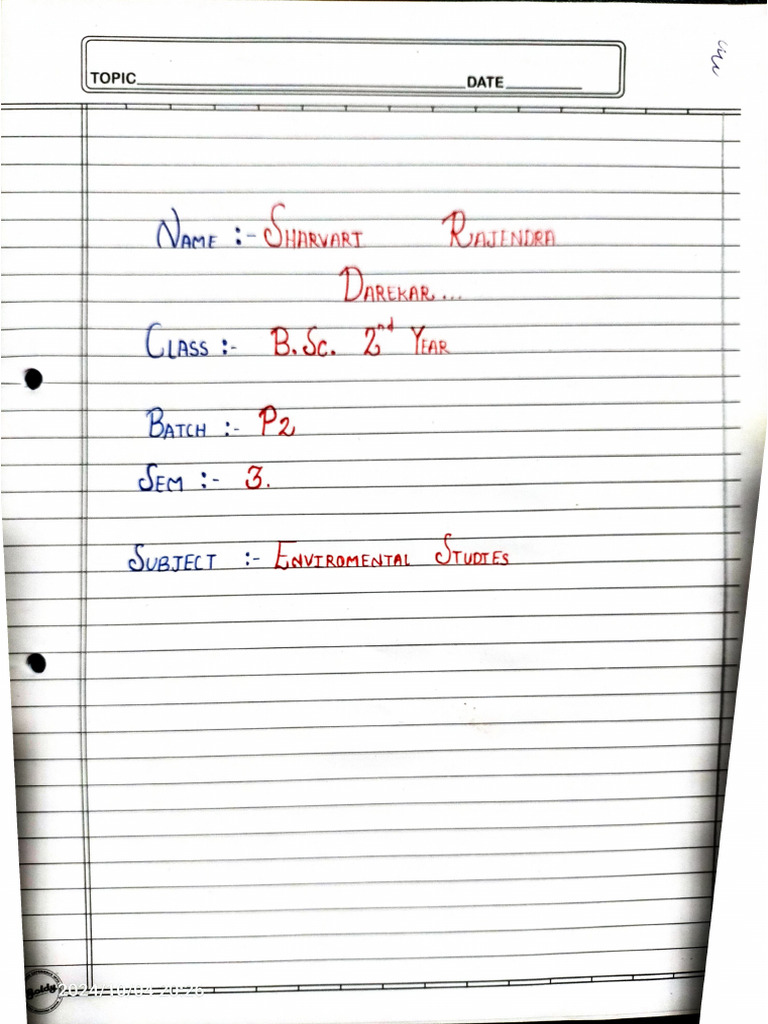 TOPIC DATE
NAME :- SHARVARI RAJENDRA
DAREKAR...
CLASS :- B.Sc. 2nd YEAR
BATCH :- P2
SEM :- 3.
SUBJECT :- ENVIROMENTAL STUDIES
2024/10/04 20:26